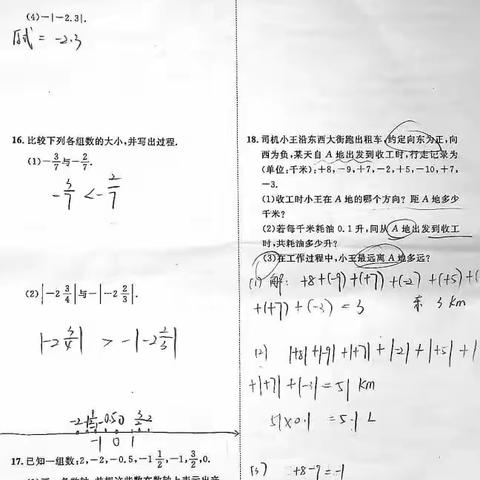 (4)-|-2.3|.
原式 = -2.3
16. 比较下列各组数的大小,并写出过程.
(1)-3/7与-2/7.
-3/7 < -2/7
(2)|-2 3/4|与-|-2 2/3|.
|-2 3/4| > -|-2 2/3|
-1 0 1
17. 已知一组数:2,-2,-0.5,-1 1/2,-1,3/2,0.
18. 司机小王沿东西大街跑出租车,约定向东为正,向
西为负,某天自 A 地出发到收工时,行走记录为
(单位:千米):+8,-9,+7,-2,+5,-10,+7,
-3.
(1)收工时小王在 A 地的哪个方向? 距 A 地多少
千米?
(2)若每千米耗油 0.1 升,问从 A 地出发到收工
时,共耗油多少升?
(3)在工作过程中,小王最远离 A 地多远?
(1) 解: +8+(-9) + (+7) + (-2) + (+5) + (
+(+7) + (-3) = 3 东 3 km
(2) |+8|+|-9| + |+7| + |-2| + |+5| + |
+|+7| + |-3| = 51 km
51×0.1 = 5.1 L
(3) +8-9=-1